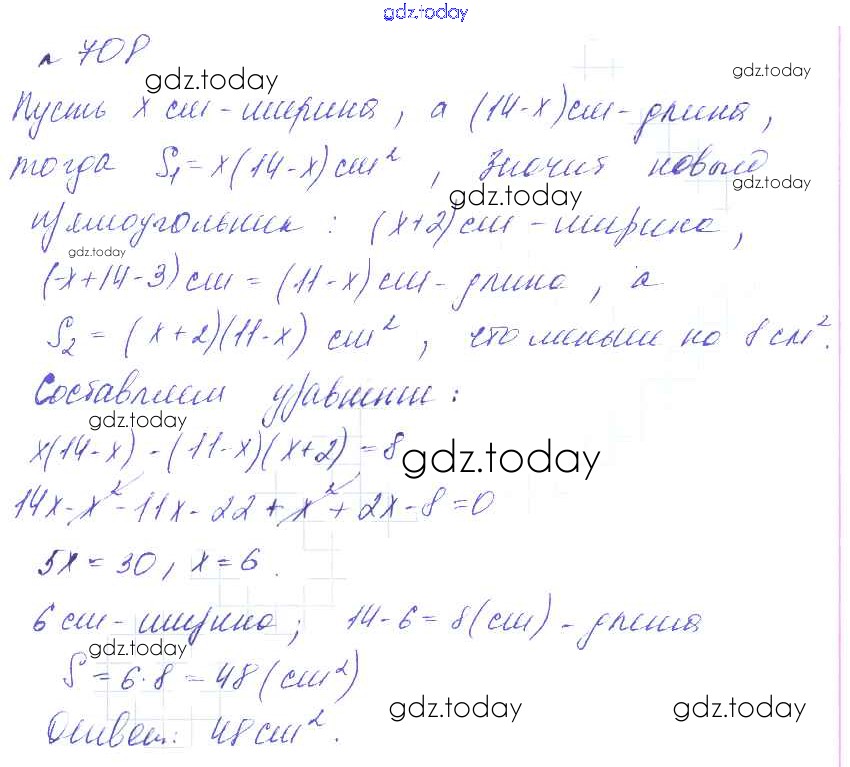 gdz.today
№ 708
gdz.today
gdz.today
Пусть x см - ширина, а (14-x) см - длина,
тогда S₁ = x(14-x) см², значит новый
gdz.today
gdz.today
прямоугольник: (x+2) см - ширина,
gdz.today
(-x+14-3) см = (11-x) см - длина, а
S₂ = (x+2)(11-x) см², что меньше на 8 см².
Составляем уравнение:
gdz.today
x(14-x) - (11-x)(x+2) = 8
gdz.today
14x - x² - 11x - 22 + x² + 2x - 8 = 0
5x = 30, x = 6.
6 см - ширина; 14-6 = 8 (см) - длина
gdz.today
S = 6·8 = 48 (см²)
gdz.today
gdz.today
Ответ: 48 см².